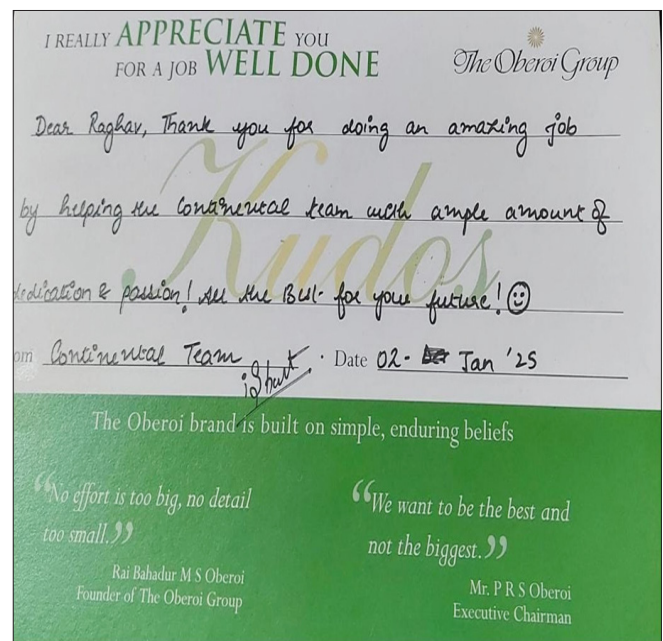 I REALLY APPRECIATE YOU
FOR A JOB WELL DONE
The Oberoi Group
Kudos
Dear Raghav, Thank you for doing an amazing job
by helping the Continental team with ample amount of
dedication & passion! All the Best for your future! ☺
om Continental Team . Date 02- Jan '25
The Oberoi brand is built on simple, enduring beliefs
“No effort is too big, no detail
too small.”
Rai Bahadur M S Oberoi
Founder of The Oberoi Group
“We want to be the best and
not the biggest.”
Mr. P R S Oberoi
Executive Chairman